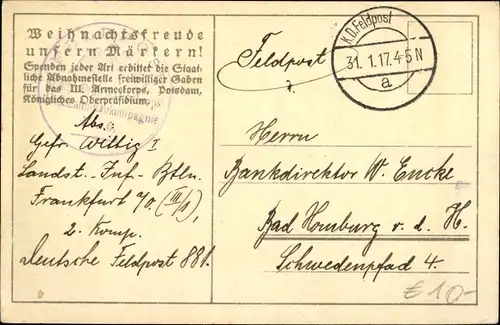 Weihnachtsfreude
unsern Märkern!
Spenden jeder Art erbittet die Staat-
liche Abnahmestelle freiwilliger Gaben
für das III. Armeekorps, Potsdam,
Königliches Oberpräsidium.
Abs.:
Gefr. Wittig I
Landst.-Inf.-Btln.
Frankfurt a/O. (III/1),
2. Komp.
Deutsche Feldpost 881.
Feldpost
K.D.Feldpost
31.1.17.4-5N
a
Herrn
Bankdirektor W. Encke
Bad Homburg v. d. H.
Schwedenpfad 4.
€ 10-